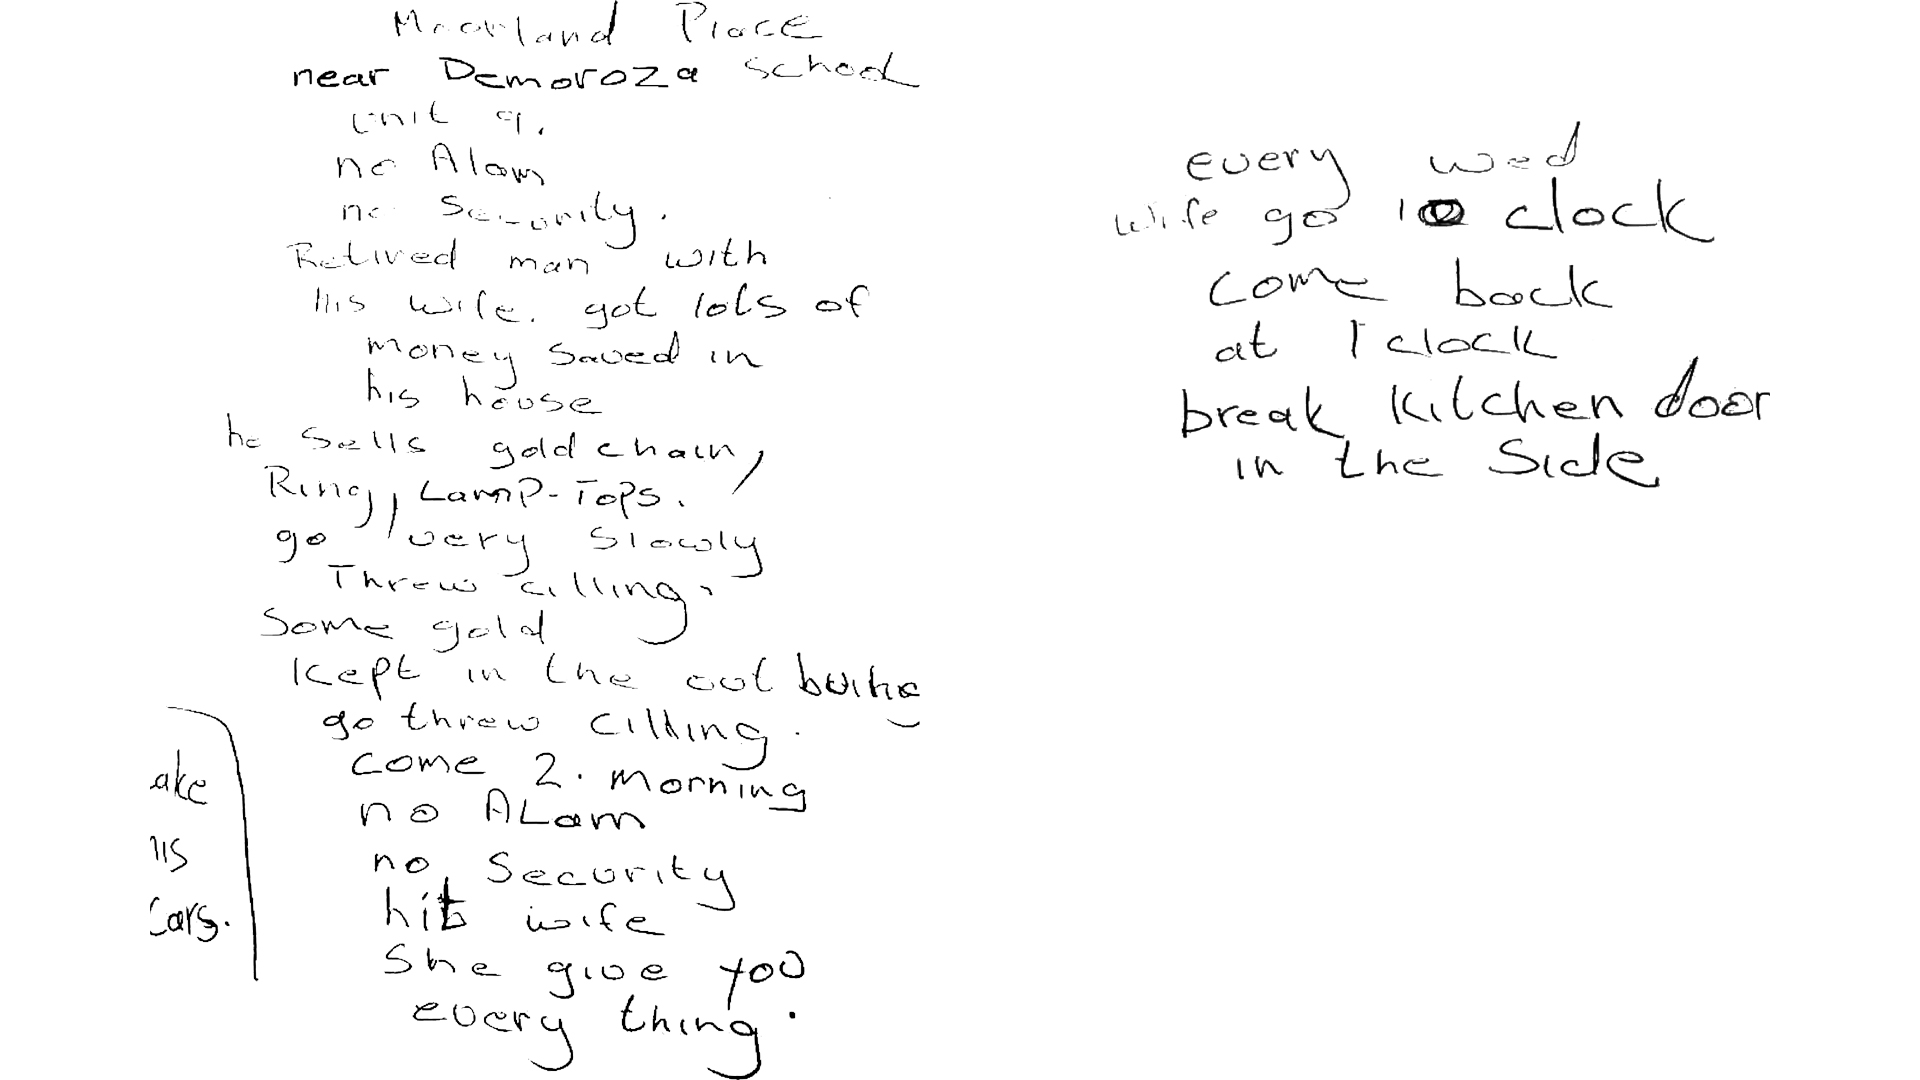 Moorland Place
near Demoroza school
unit 9.
no Alam
no Security.
Retired man with
his wife. got lots of
money saved in
his house
he sells gold chain,
Ring, Lamp-Tops.
go very slowly
Threw cilling.
Some gold
kept in the out
go threw cilling.
come 2. morning
no ALam
no Security
hit wife
She give you
every thing.
ake
his
Cars.
every wed
wife go 10 clock
come back
at 1 clock
break kitchen door
in the Side